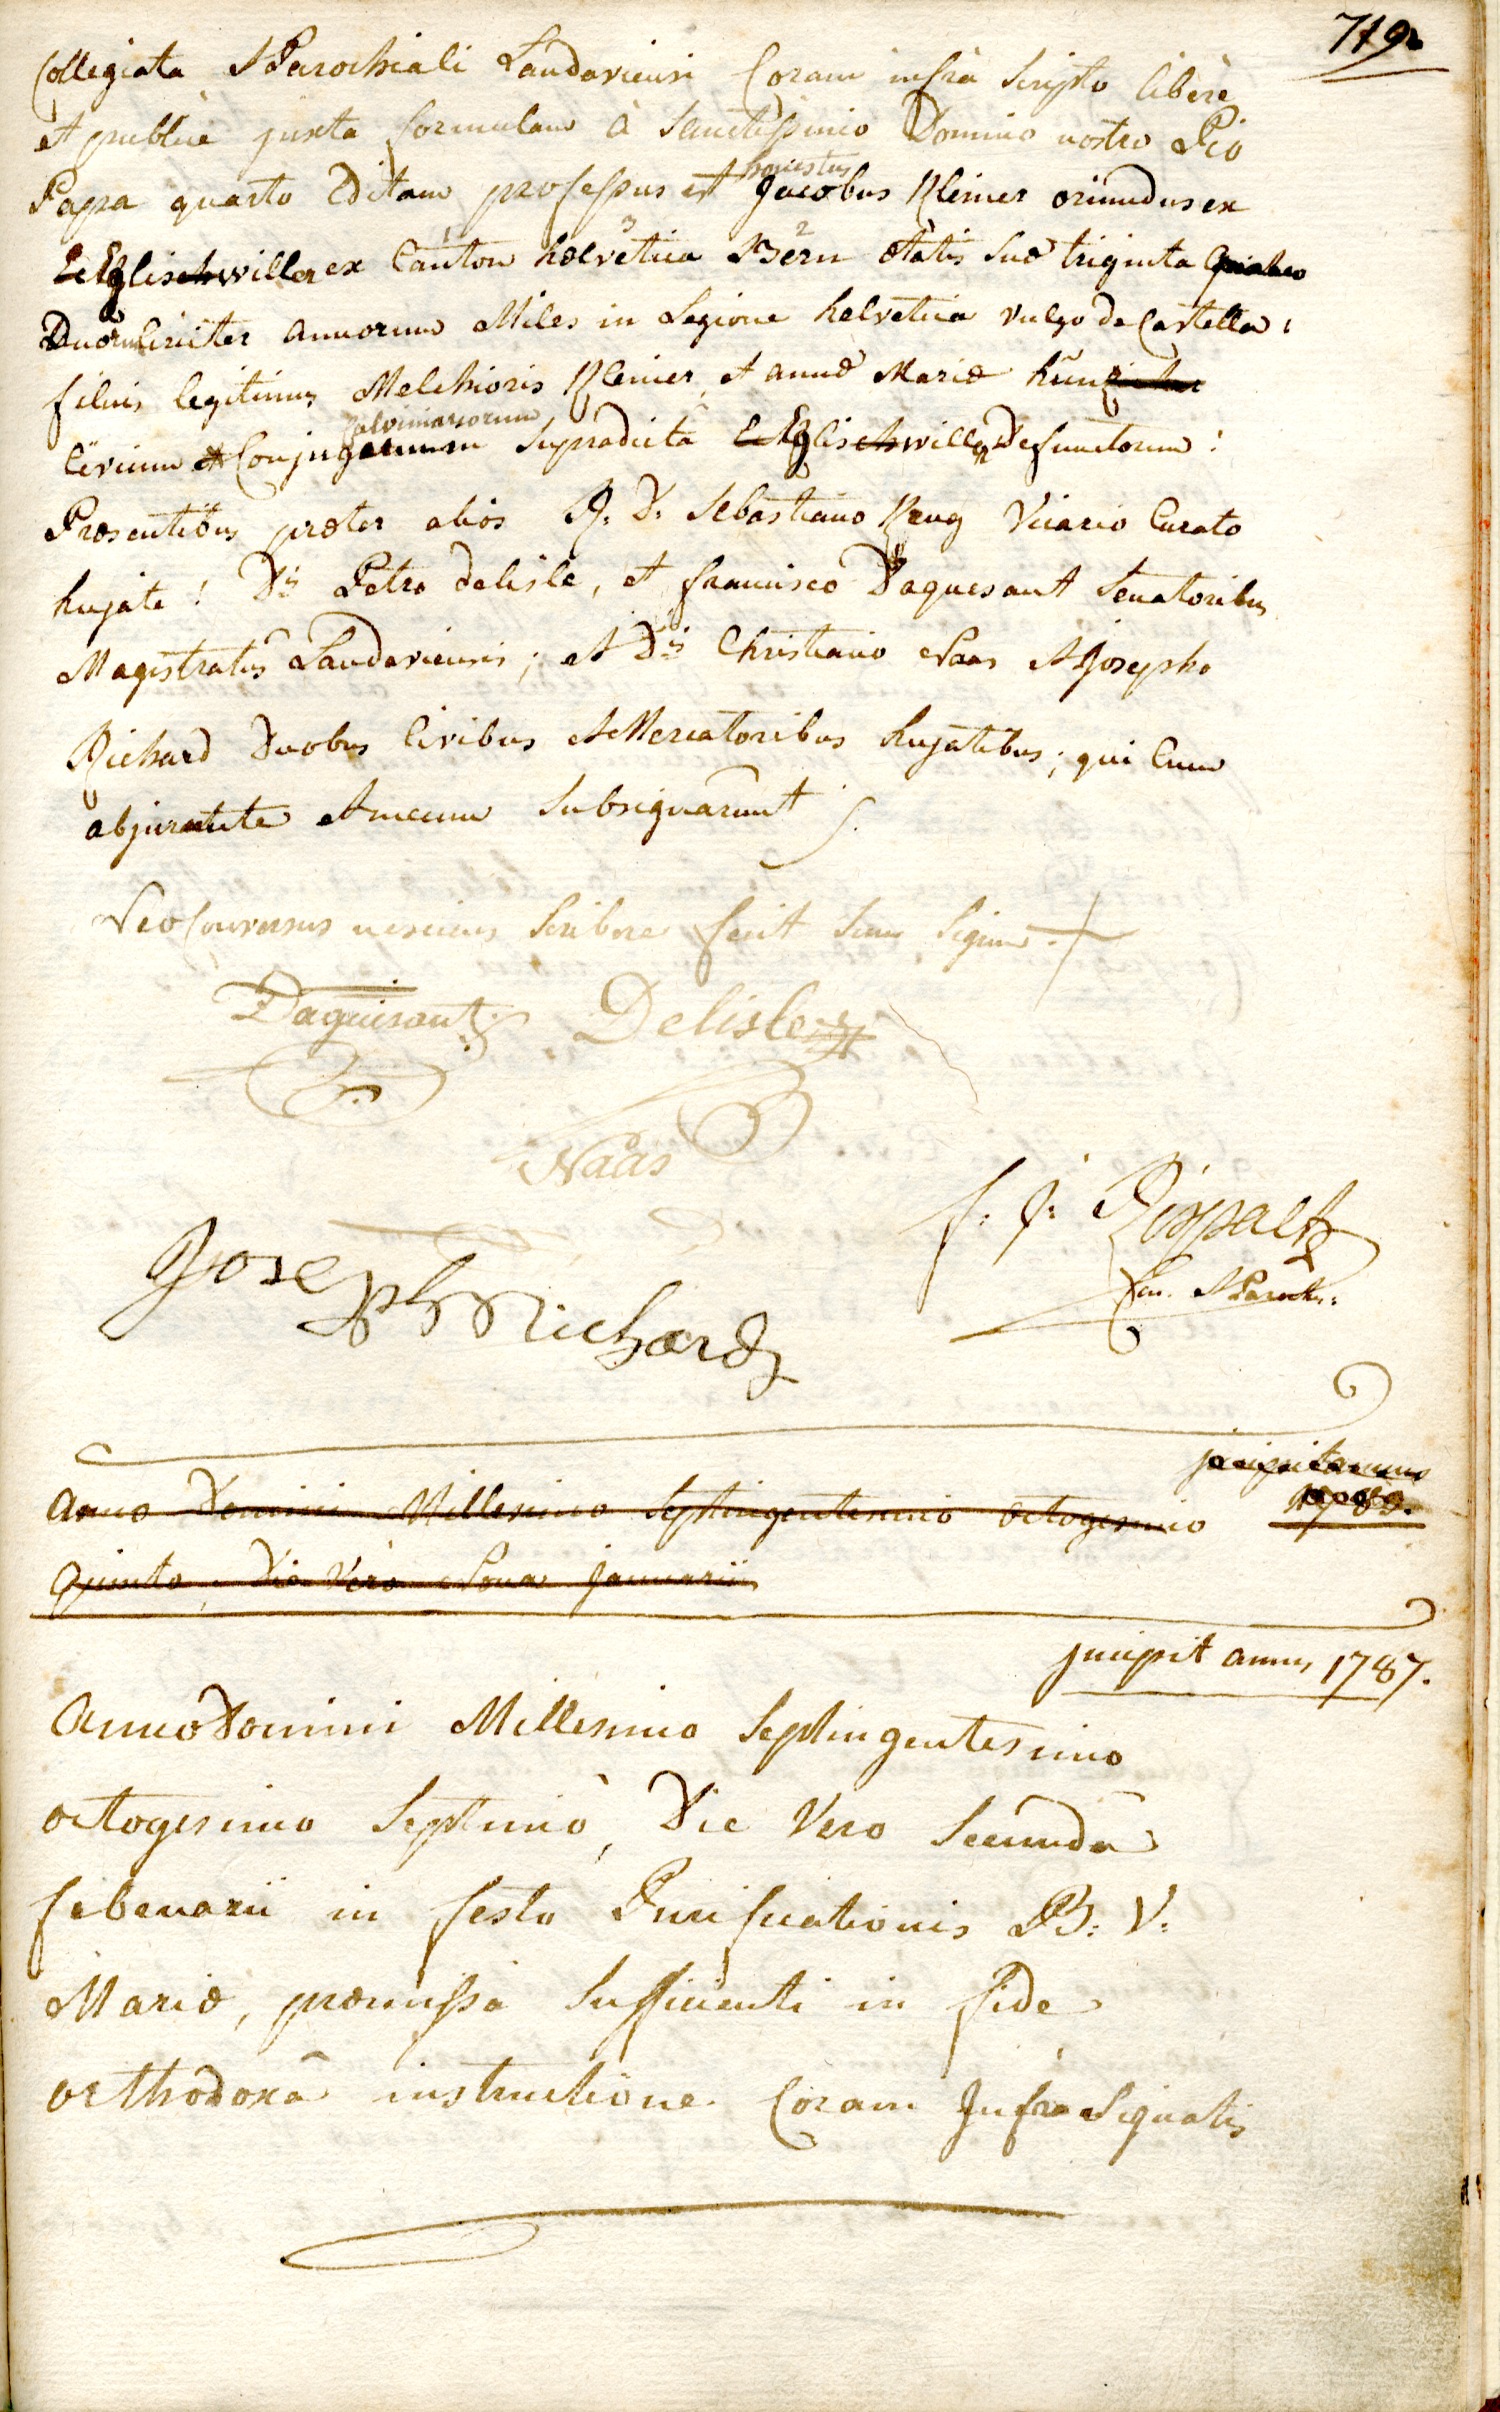 719.
Collegiata & Parochiali Landaviensi Coram infra Scripto liberè
et publicè juxta formulam à Sanctissimo Domino nostro Pio
honestus
Papa quarto Editam professus est Jacobus Kleiner oriundus ex
1 3 2
Eglischwiller ex Canton helvetica Bern ætatis suæ triginta
Duorum Circiter annorum Miles in Legione helvetica vulgo de Castella:
filius legitimus Melchioris Kleiner, et annæ Mariæ
Calvinianorum
Civium et Conjugum supradicta Eglischwiller Defunctorum:
Præsentibus præter alios R: D: Sebastiano Krug Vicario Curato
hujate! Dis Petro delisle, et francisco Daguesant Senatoribus
Magistratûs Landaviensis; et Dis Christiano Naas et Josepho
Richard Duobus Civibus et Mercatoribus hujatibus; qui Cum
abjurante et mecum Subsignarunt
Neo Conversus nescius Scribere fecit Suum Signum +
Daguisant Delisle
Naas
f: J: Rippalt
Can. & Paroch:
Joseph Richard
incipit annus
1785.
Anno Domini Millesimo Septingentesimo octogesimo
Quinto, Die Vero Nona Januarii
Incipit annus 1787.
Anno Domini Millesimo Septingentesimo
octogesimo Septimo, Die Vero Secunda
februarii in festo Purificationis B: V:
Mariæ, præmissa Sufficienti in fide
orthodoxâ instructione Coram Infra Signatis